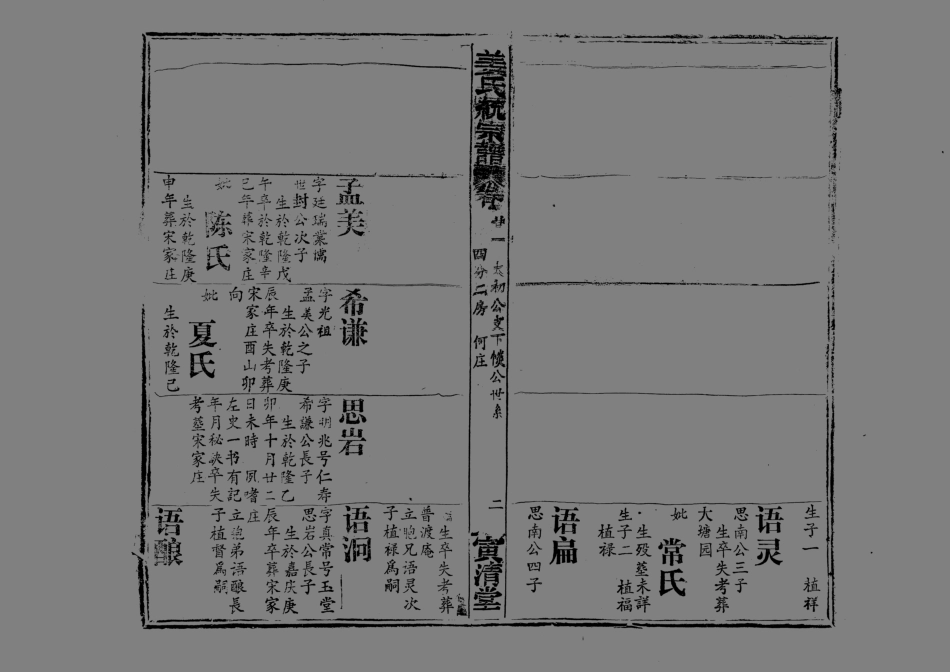 生子一 植祥
语灵
思南公三子
生卒失考葬
大塘园
妣
常氏
生殁墓未詳
生子二 植福
植禄
语扁
思南公四子
姜氏統宗譜
卷
廿一
四分二房 何庄
太初公支下慎公世系
二
寅清堂
孟美
字廷瑞業儒
世封公次子
生於乾隆戊
午年卒於乾隆辛
巳年葬宋家庄
妣
陈氏
生於乾隆庚
申年葬宋家庄
希谦
字光祖
孟美公之子
生於乾隆庚
辰年卒失考葬
宋家庄酉山卯
向
妣
夏氏
生於乾隆己
思岩
字明兆号仁寿
希谦公長子
生於乾隆乙
卯年十月廿二
日未時 夙嗜
左史一书有記
年月秘诀卒失
考墓宋家庄
生卒失考葬
普渡庵
立胞兄语灵次
子植禄為嗣
语洞
字真常号玉堂
思岩公長子
生於嘉庆庚
辰年卒葬宋家
庄
立胞弟语酿長
子植督為嗣
语酿